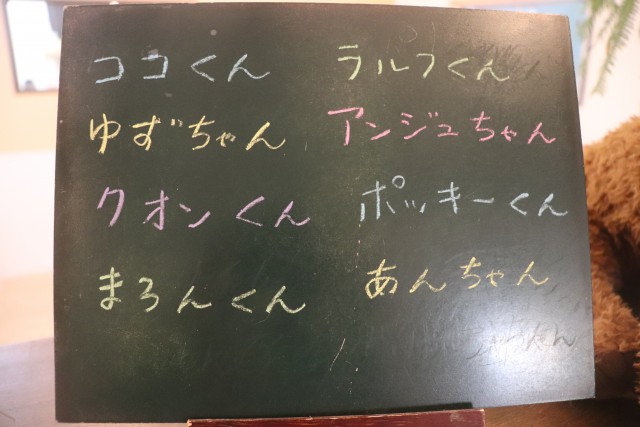 ココくん ラルフくん
ゆずちゃん アンジュちゃん
クオンくん ポッキーくん
まろんくん あんちゃん